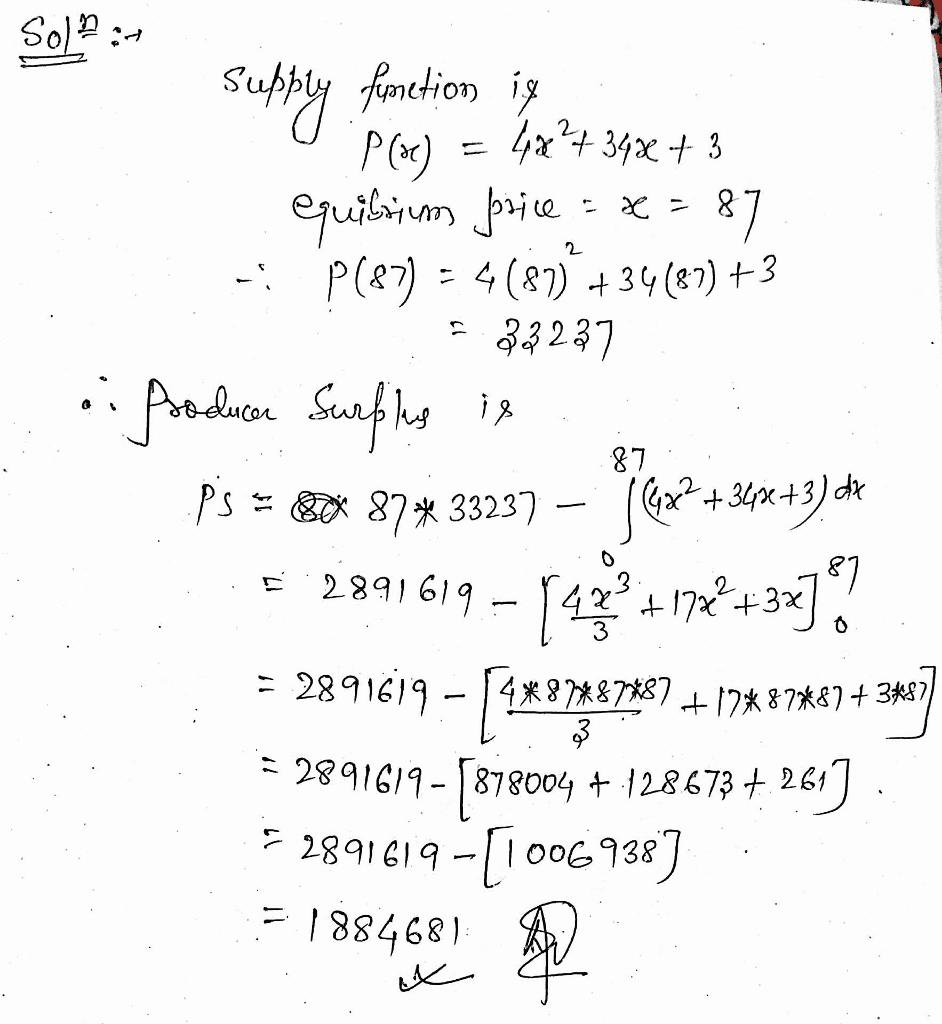 Solⁿ :→
Supply function is
P(x) = 4x² + 34x + 3
equibrium price = x = 87
∴ P(87) = 4(87)² + 34(87) + 3
= 33237
∴ Producer Surplus is
PS = 87 * 33237 − ∫₀⁸⁷ (4x² + 34x + 3) dx
= 2891619 − [4x³/3 + 17x² + 3x]₀⁸⁷
= 2891619 − [4*87*87*87/3 + 17*87*87 + 3*87]
= 2891619 − [878004 + 128673 + 261]
= 2891619 − [1006938]
= 1884681